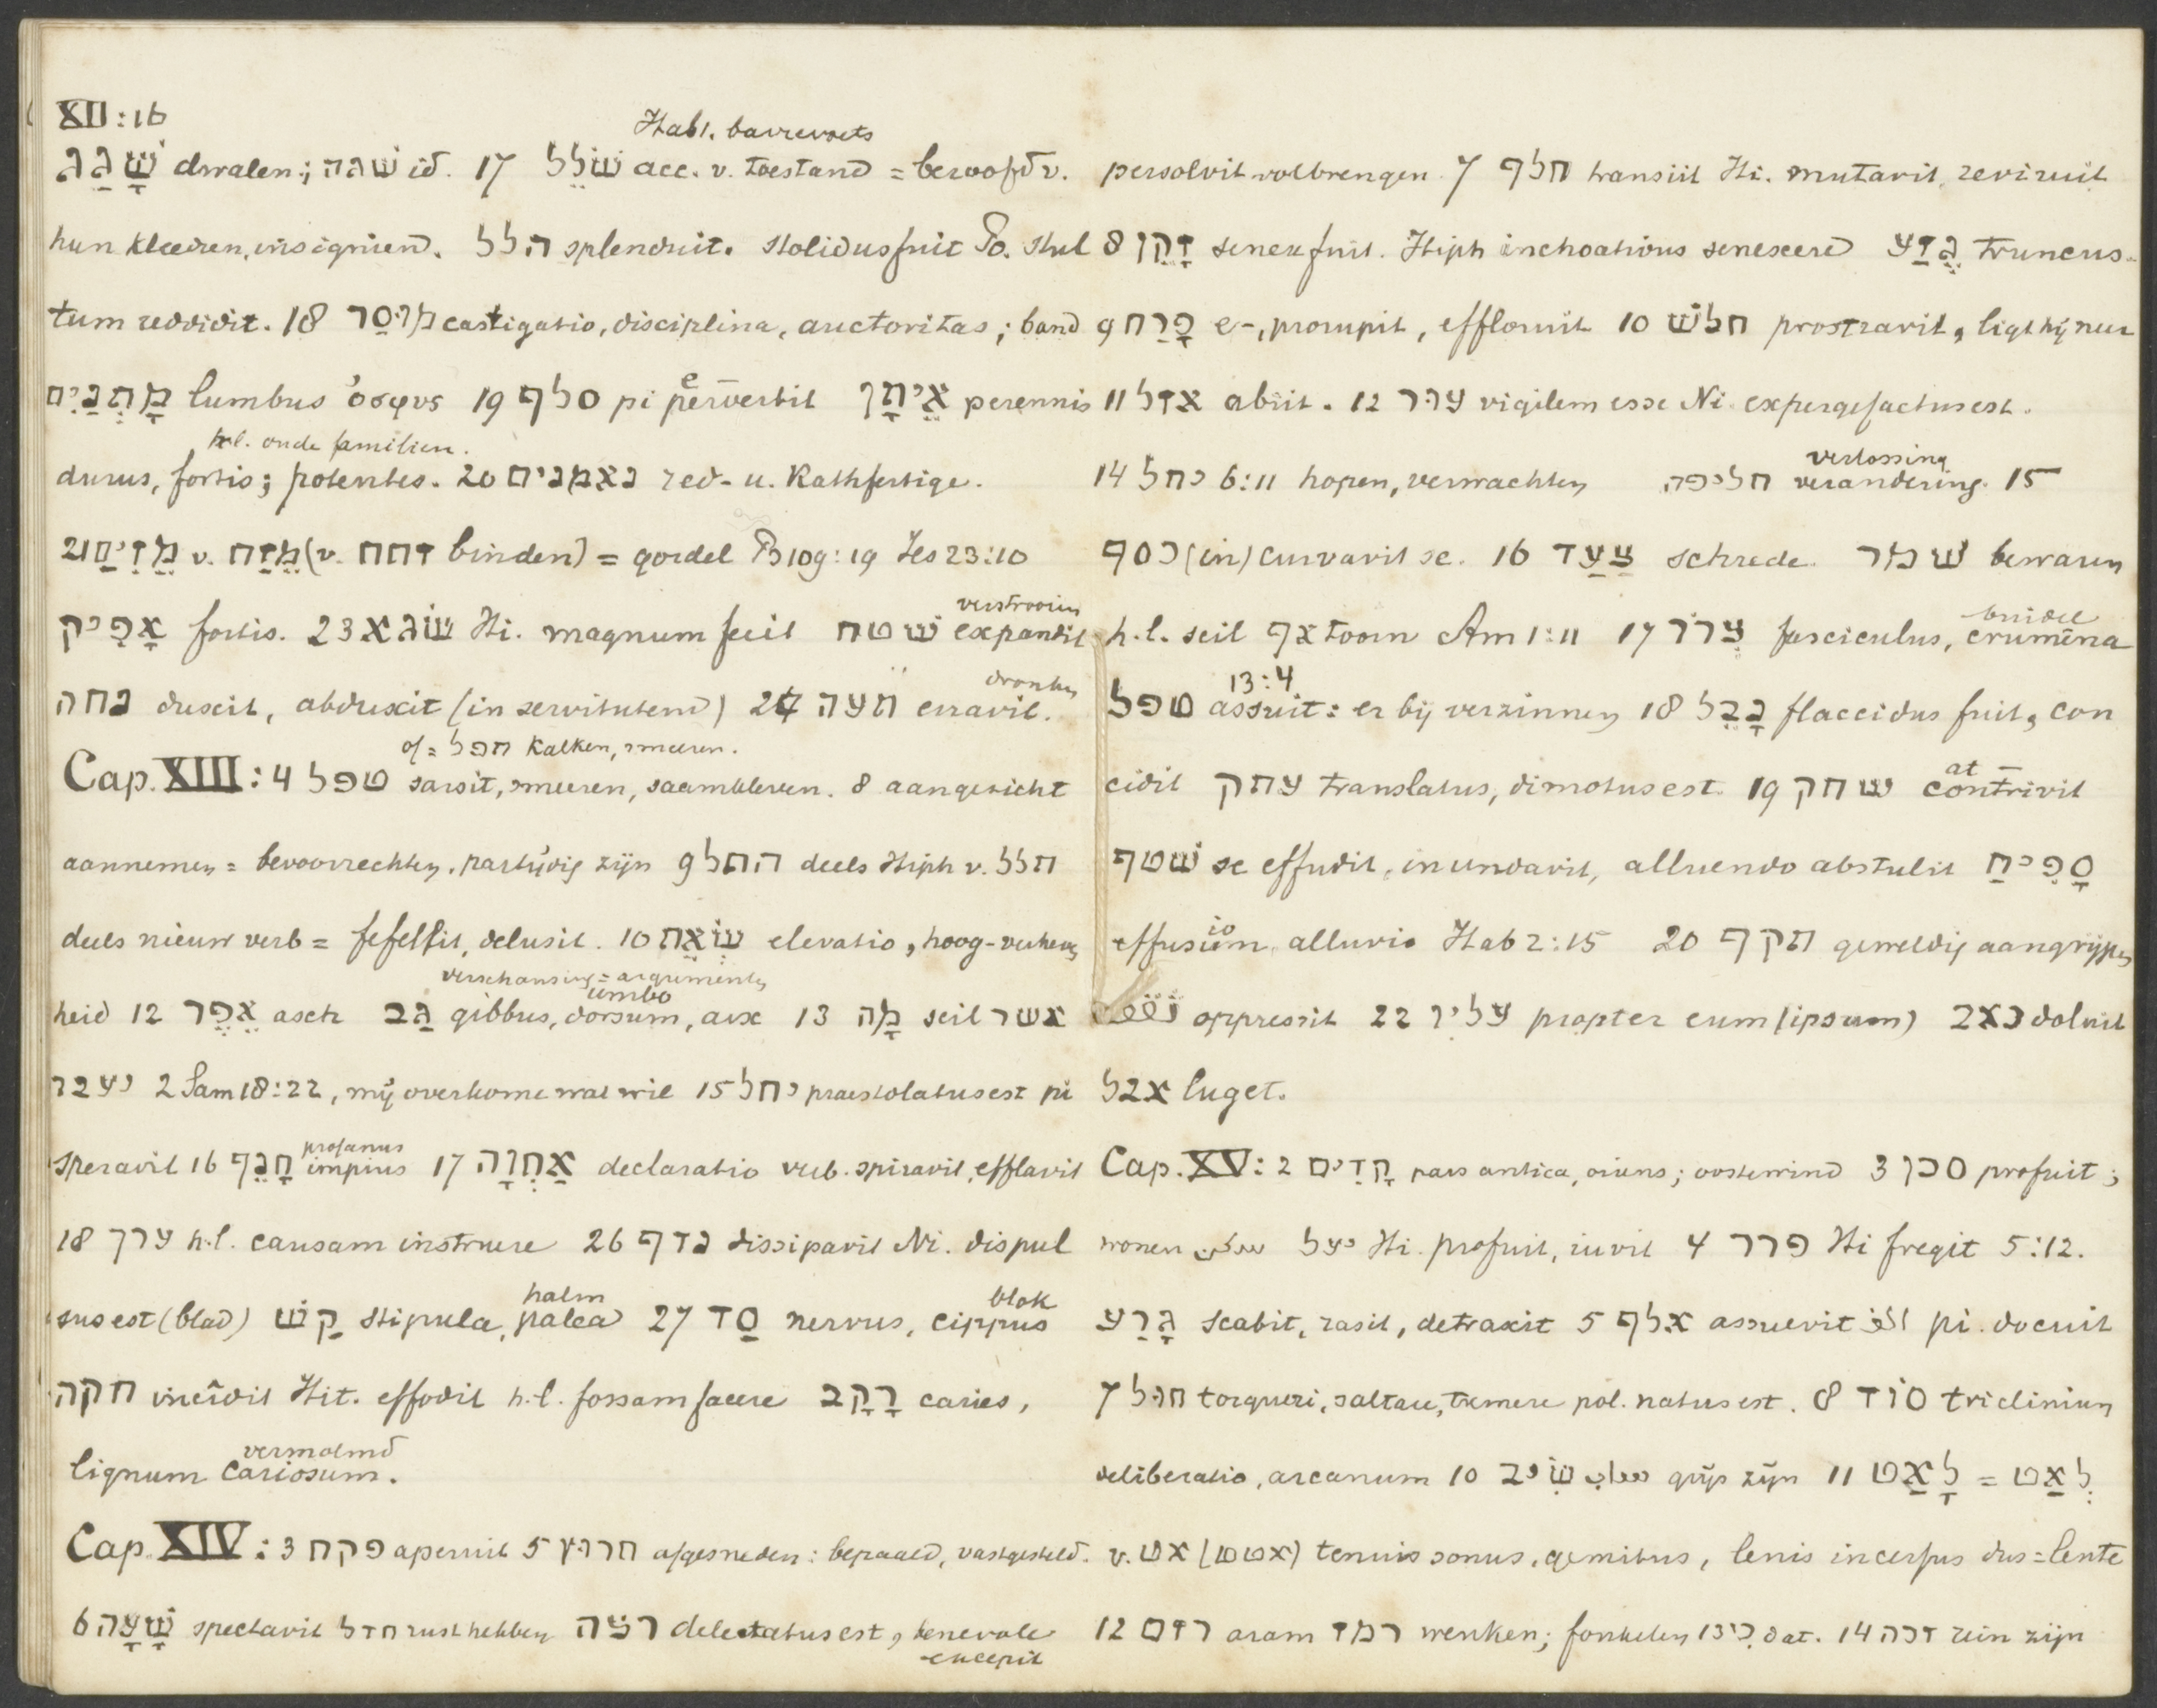 XII:16
Habl. barrevoets
שָׁגַג dwalen; שגה id. 17 שׁוֹלֵל acc. v. toestand = beroofd v.
hun kleeren, insignien. הלל splenduit. stolidus fuit Po. stul
tum reddidit. 18 מוּסַר castigatio, disciplina, auctoritas; band
מָתְנַיִם lumbus ὀσφυς 19 סלף pi pervertit אֵיתָן perennis
h.l. oude familien.
durus, fortis; potentes. 20 נאמנים red- u. Rathfertige.
21 מְזִיחַ v. מֵזַח (v. זחח binden) = gordel Ps 109:19 Jes 23:10
verstrooien
אָפִיק fortis. 23 שׂגא Hi. magnum fecit שטח expandit
dronken
נחה duxit, abduxit (in servitutem) 24 תעה erravit.
of = תפל kalken, smeren.
Cap. XIII: 4 טפל sarsit, smeeren, saamkleven. 8 aangezicht
aannemen = bevoorrechten, partijdig zijn 9 התל deels Hiph v. תלל
deels nieuw verb = fefellit, delusit. 10 שׂוֹאֵת elevatio, hoog-verheven
verschansing = argumenten
umbo
heid 12 אֵפֶר asch גַּב gibbus, dorsum, arx 13 מָה scil אשר
יעבר 2 Sam 18:22, mij overkome wat wil 15 יחל praestolatus est pi
profanus
speravit 16 חָנֵף impius 17 אַחְוָה declaratio verb. spiravit, efflavit
18 ערך h.l. causam instruere 26 נדף dissipavit Ni. dispul
halm blok
sus est (blad) קַשׁ stipula, palea 27 סַד nervus, cippus
חקה incidit Hit. effodit h.l. fossam facere רָקָב caries,
vermolmd
lignum cariosum.
Cap. XIV: 3 פקח aperuit 5 חרוץ afgesneden: bepaald, vastgesteld.
6 שָׁעָה spectavit חדל rust hebben רצה delectatus est, benevole
excepit
persolvit volbrengen 7 חלף transiit Hi. mutavit, reviruit
8 זָקֵן senex fuit. Hiph inchoativus senescere גֶּזַע truncus.
9 פָּרַח e-, prorupit, effloruit 10 חלשׁ prostravit, ligt hij neer
11 אזל abiit. 12 עור vigilem esse Ni. expergefactus est.
verlossing
14 יחל 6:11 hopen, verwachten חליפה verandering. 15
כסף (in) curvavit se. 16 צַעַד schrede. שמר bewaren
buidel
h.l. scil אף toorn Am 1:11 17 צְרוֹר fasciculus, crumēna
13:4
טפל assuit: er bij verzinnen 18 נָבֵל flaccidus fuit, con
at
cidit עתק translatus, dimotus est. 19 שחק contrivit
שׁטף se effudit, inundavit, alluendo abstulit סָפִיחַ
io
effusion alluvio Hab 2:15 20 תקף geweldig aangrijpen
oppressit 22 עָלָיו propter eum (ipsum) כאב doluit
אבל luget.
Cap. XV: 2 קָדִים pars antica, oriens; oostenwind 3 סכן profuit;
wonen سكن יעל Hi. profuit, iuvit 4 פרר Hi fregit 5:12.
גָּרַע scabit, rasit, detraxit 5 אלף assuevit الف pi. docuit
7 חול torqueri, saltare, tremere pol. natus est. 8 סוד triclinium
deliberatio, arcanum 10 שִׂיב شاب grijs zijn 11 לָאַט = לְאַט
v. אט (אטט) tenuis sonus, gemitus, lenis incessus dus = lente
12 רזם aram רמז wenken; fonkelen 13 כִּי dat. 14 זכה rein zijn